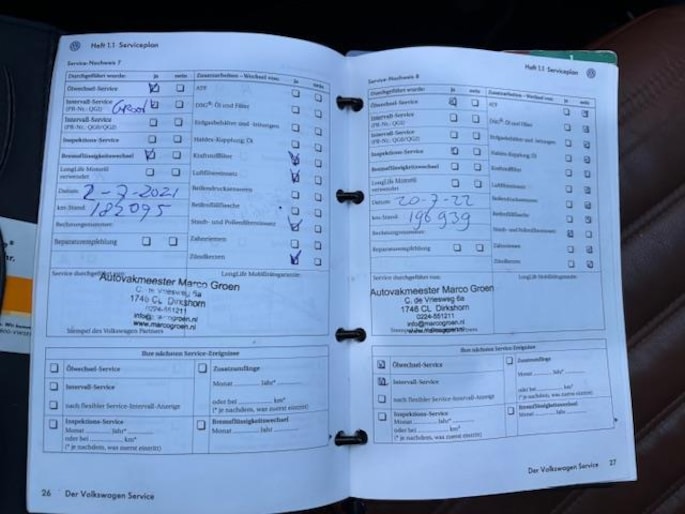 Heft 1.1 Serviceplan
Service-Nachweis 7
Durchgeführt wurde: ja nein
Ölwechsel-Service
Intervall-Service
(PR-Nr.: QG1) Groot
Intervall-Service
(PR-Nr.: QG0/QG2)
Inspektions-Service
Bremsflüssigkeitswechsel
LongLife Motoröl
verwendet
Datum: 2-7-2021
km-Stand: 182095
Rechnungsnummer:
Reparaturempfehlung
Zusatzarbeiten - Wechsel von: ja nein
ATF
DSG® Öl und Filter
Erdgasbehälter und -leitungen
Haldex-Kupplung Öl
Kraftstofffilter
Luftfiltereinsatz
Reifendruckensoren
Reifenfüllflasche
Staub- und Pollenfiltereinsatz
Zahnriemen
Zündkerzen
Service durchgeführt von:
LongLife Mobilitätsgarantie:
Autovakmeester Marco Groen
C. de Vriesweg 6a
1746 CL Dirkshorn
0224-551211
www.marcogroen.nl
Stempel des Volkswagen Partners
Ihre nächsten Service-Ereignisse
Ölwechsel-Service
Intervall-Service
nach flexibler Service-Intervall-Anzeige
Inspektions-Service
Monat Jahr*
oder bei km*
(* je nachdem, was zuerst eintritt)
Zusatzumfänge
Monat Jahr*
oder bei km*
(* je nachdem, was zuerst eintritt)
Bremsflüssigkeitswechsel
Monat Jahr
26 Der Volkswagen Service
Heft 1.1 Serviceplan
Service-Nachweis 8
Durchgeführt wurde: ja nein
Ölwechsel-Service
Intervall-Service
(PR-Nr.: QG1)
Intervall-Service
(PR-Nr.: QG0/QG2)
Inspektions-Service
Bremsflüssigkeitswechsel
LongLife Motoröl
verwendet
Datum: 20-7-22
km-Stand: 196939
Rechnungsnummer:
Reparaturempfehlung
Zusatzarbeiten - Wechsel von: ja nein
ATF
DSG® Öl und Filter
Erdgasbehälter und -leitungen
Haldex-Kupplung Öl
Kraftstofffilter
Luftfiltereinsatz
Reifendruckensoren
Reifenfüllflasche
Staub- und Pollenfiltereinsatz
Zahnriemen
Zündkerzen
Service durchgeführt von:
LongLife Mobilitätsgarantie:
Autovakmeester Marco Groen
C. de Vriesweg 6a
1746 CL Dirkshorn
0224-551211
www.marcogroen.nl
Stempel des Volkswagen Partners
Ihre nächsten Service-Ereignisse
Ölwechsel-Service
Intervall-Service
nach flexibler Service-Intervall-Anzeige
Inspektions-Service
Monat Jahr*
oder bei km*
(* je nachdem, was zuerst eintritt)
Zusatzumfänge
Monat Jahr*
oder bei km*
(* je nachdem, was zuerst eintritt)
Bremsflüssigkeitswechsel
Monat Jahr
Der Volkswagen Service 27